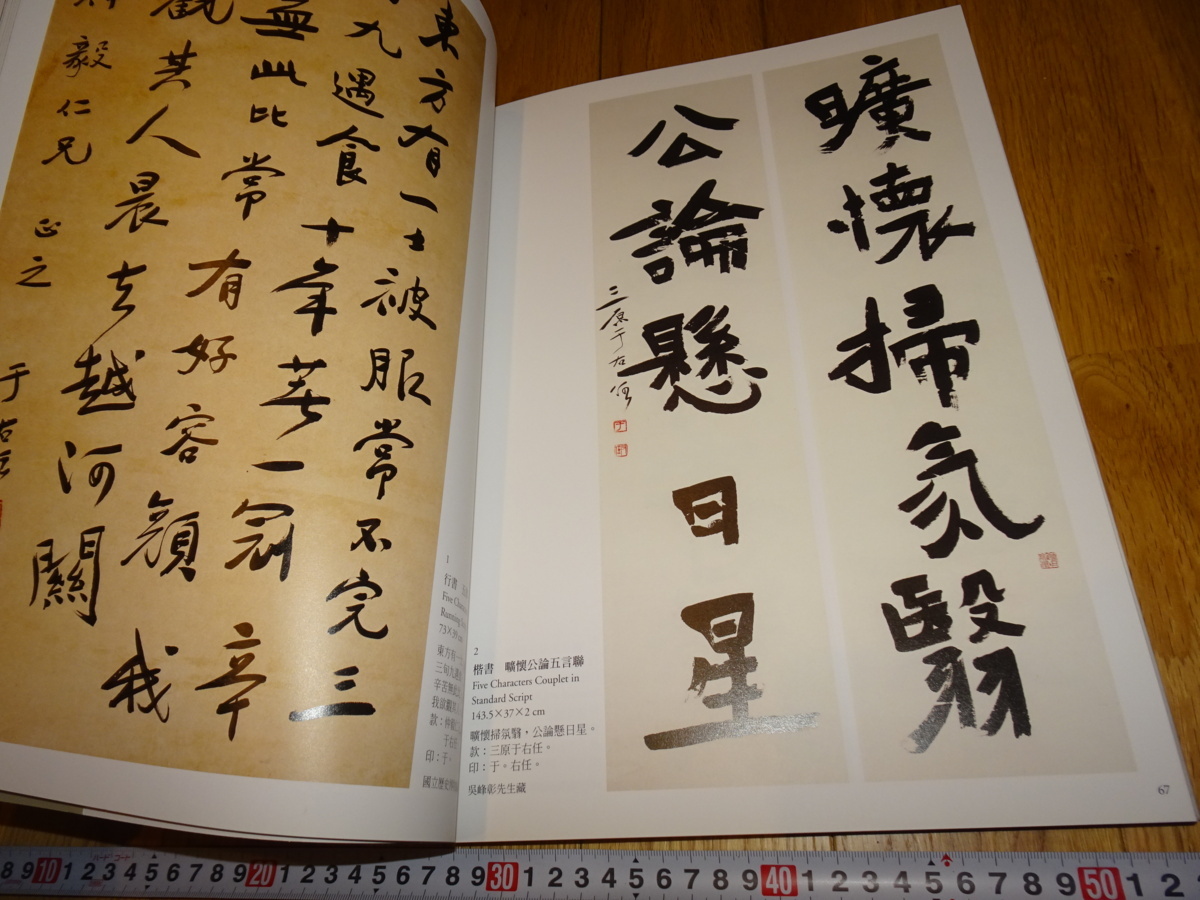 東方有一士被服常不完三
九遇食十年著一冠辛
無此比常有好容顏我
觀其人晨去越河關
毅仁兄 正之
于右任
1
行書
Five Cha
Running
73×39 cm
東方有一
三旬九遇
辛苦無此
我欲觀其
款：仲毅
于右任
印：于。
國立歷史博
曠懷掃氛翳
公論懸日星
三原于右任
2
楷書 曠懷公論五言聯
Five Characters Couplet in
Standard Script
143.5×37×2 cm
曠懷掃氛翳，公論懸日星。
款：三原于右任。
印：于。右任。
吳峰彰先生藏
67
8 9 10 1 2 3 4 5 6 7 8 9 20 1 2 3 4 5 6 7 8 9 30 1 2 3 4 5 6 7 8 9 40 1 2 3 4 5 6 7 8 9 50 1 2